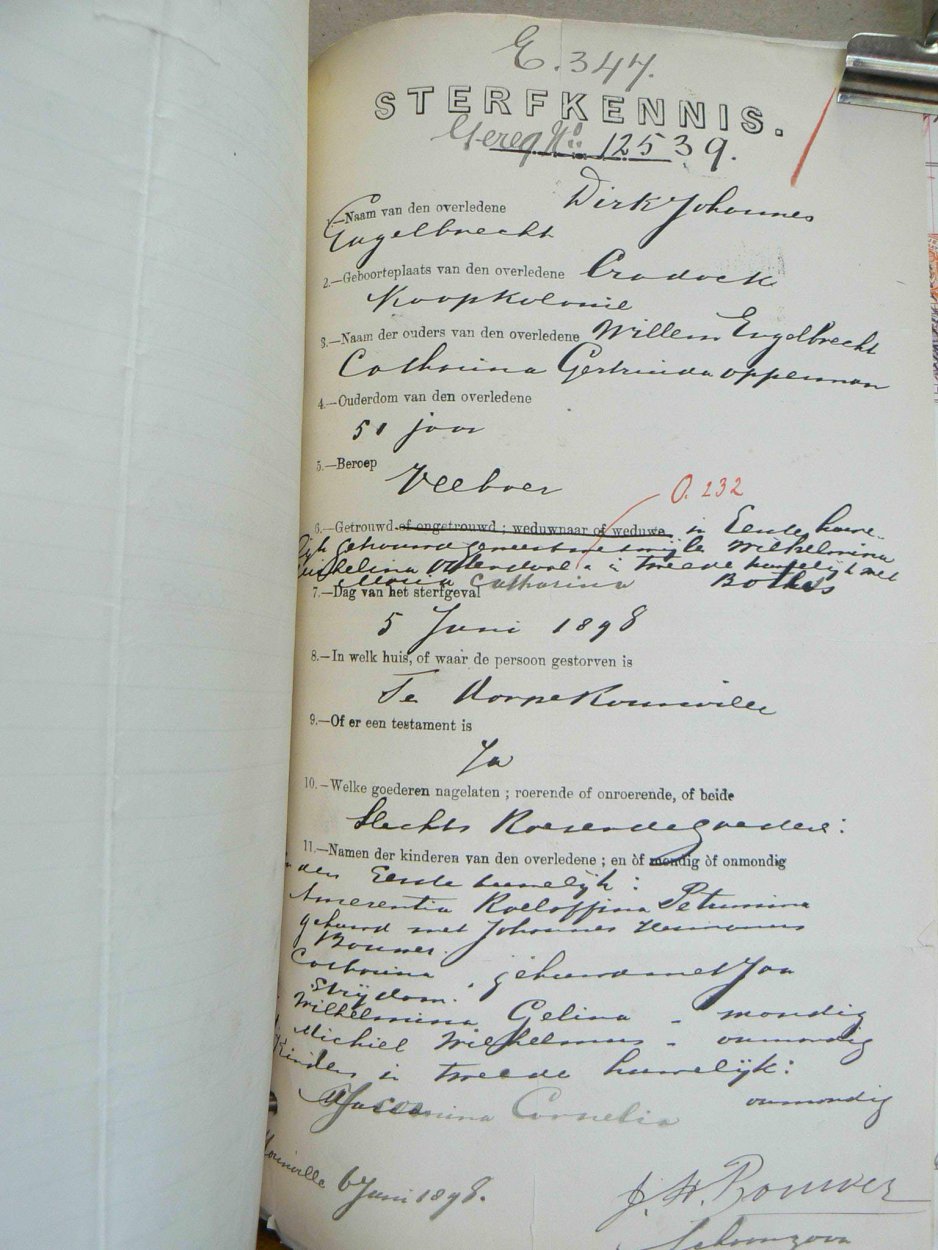 E. 347.
STERFKENNIS.
Gereg No. 12539.
1.—Naam van den overledene Dirk Johannes
Engelbrecht
2.—Geboorteplaats van den overledene Cradock
Kaapkolonie
3.—Naam der ouders van den overledene Willem Engelbrecht
Catharina Gertruida Opperman
4.—Ouderdom van den overledene
51 jaar
5.—Beroep
Veeboer
O. 232
6.—Getrouwd of ongetrouwd ; weduwnaar of weduwe in Eerste huwe-
lijk getrouwd geweest met wijle Wilhelmina
in tweede huwelijk met
Maria Catharina Botha
7.—Dag van het sterfgeval
5 Juni 1898
8.—In welk huis, of waar de persoon gestorven is
Te Dorpe Rouxville
9.—Of er een testament is
Ja
10.—Welke goederen nagelaten ; roerende of onroerende, of beide
Slechts Roerende goederen:
11.—Namen der kinderen van den overledene ; en òf mondig òf onmondig
Eerste huwelijk :
Amerentia Roeloffina Petrusina
gehuwd met Johannes Hermanus
Bouwer.
Catharina gehuwd met Jan
Strydom.
Wilhelmina Gelina - mondig
Michiel Wilhelmus - onmondig
Kinders in tweede huwelijk :
Cornelia onmondig
Rouxville 6 Juni 1898.
J. H. Bouwer
Schoonzoon